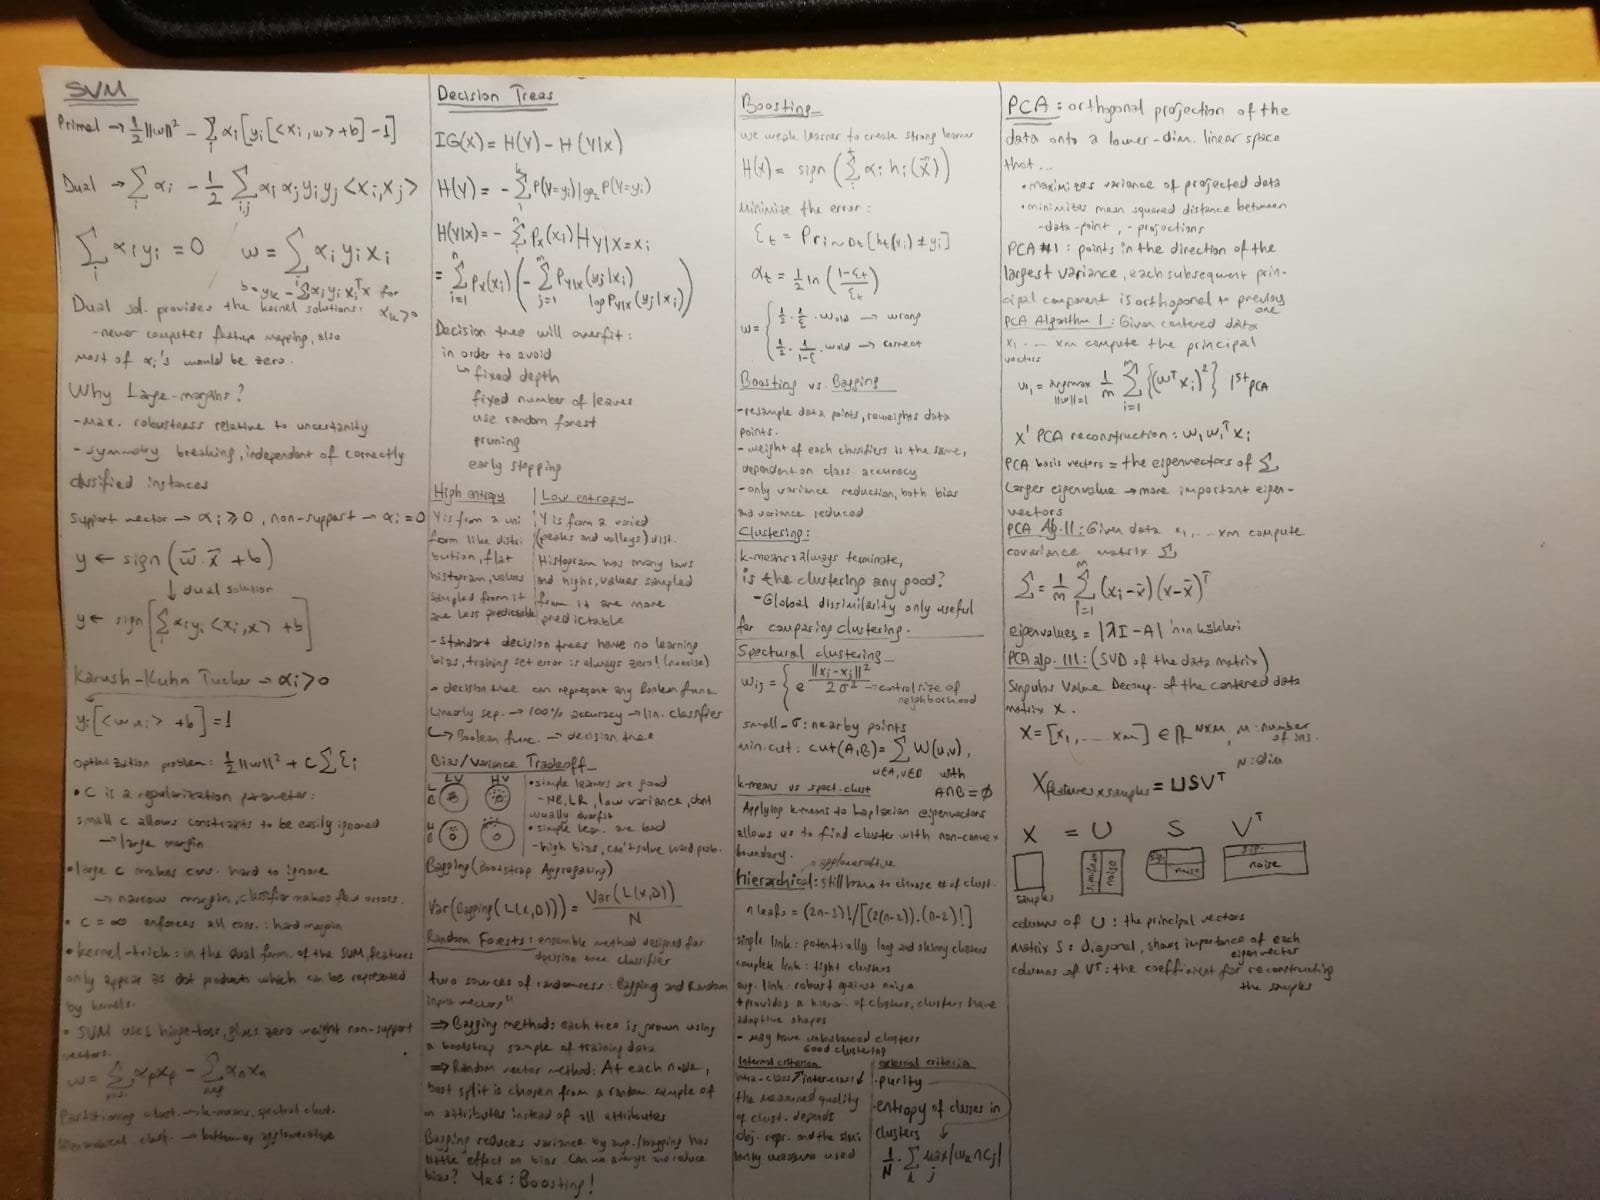 SVM
Primal → 1/2 ||w||² - Σi αi [yi [<xi, w> + b] - 1]
Dual → Σi αi - 1/2 Σi,j αi αj yi yj <xi, xj>
Σi αi yi = 0    w = Σi αi yi xi
b = yk - Σ αi yi xiᵀx for αk > 0
Dual sol. provides the kernel solutions:
- never computes feature mapping, also
most of αi's would be zero.
Why Large-margins?
- Max. robustness relative to uncertainity
- symmetry breaking, independent of correctly
classified instances
Support vector → αi ≥ 0, non-support → αi = 0
y ← sign (w⃗ x⃗ + b)
↓ dual solution
y ← sign [Σi αi yi <xi, x> + b]
Karush-Kuhn Tucker → αi > 0
yi [<w xi> + b] = 1
Optimization problem: 1/2 ||w||² + C Σ ξi
• C is a regularization parameter:
small c allows constraints to be easily ignored
→ large margin
• large c makes cons. hard to ignore
→ narrow margin, classifier makes few errors.
• C = ∞ enforces all cons.: hard margin
• kernel-trick: in the dual form. of the SVM, features
only appear as dot products which can be represented
by kernels.
• SVM uses hinge-loss, gives zero weight non-support
vectors.
w = Σ αp xp - Σ αn xn
Partitioning clust. → k-means, spectral clust.
Hierarchical clust. → bottom-up agglomerative
Decision Trees
IG(X) = H(Y) - H(Y|X)
H(Y) = - Σ P(Y=yi) log2 P(Y=yi)
H(Y|X) = - Σ Px(xi) H Y|X=xi
= Σ Px(xi) (- Σ PY|X (yj|xi) log PY|X (yj|xi))
Decision tree will overfit:
in order to avoid
↳ fixed depth
fixed number of leaves
use random forest
pruning
early stopping
High entropy
Y is from a uni
form like distri
bution, flat
histogram, values
sampled from it
are less predictable
Low entropy
Y is from a varied
(peaks and valleys) dist.
Histogram has many lows
and highs, values sampled
from it are more
predictable
- Standart decision trees have no learning
bias, training set error is always zero! (no noise)
→ decision tree can represent any Boolean func
Linearly sep. → 100% accuracy → lin. classifier
↳ Boolean func. → decision tree
Bias/Variance Tradeoff
LV HV
LB
HB
• simple leaners are good
- NB, LR, low variance, dont
usually overfit
• simple lear. are bad
- high bias, can't solve hard prob.
Bagging (Bootstrap Aggregating)
Var(Bagging(L(x,D))) = Var(L(x,D)) / N
Random Forests: ensemble method designed for
decision tree classifier
two sources of randomness: Bagging and Random
input vectors"
⇒ Bagging method: each tree is grown using
a bootstrap sample of training data
⇒ Random vector method: At each node,
best split is chosen from a random sample of
m attributes instead of all attributes
Bagging reduces variance by avg./bagging has
little effect on bias. Can we average and reduce
bias? Yes: Boosting!
Boosting
use weak learner to create strong learner
H(x) = sign (Σ αi hi(x⃗))
Minimize the error:
εt = Pr i~Dt [ht(xi) ≠ yi]
αt = 1/2 ln ((1-εt)/εt)
w = { 1/2 · 1/ε · wold → wrong
1/2 · 1/(1-ε) · wold → correct
Boosting vs. Bagging
- resample data points, reweights data
points.
- weight of each classifiers is the same,
dependent on class. accuracy
- only variance reduction, both bias
and variance reduced
Clustering:
k-means: always terminate,
is the clustering any good?
- Global dissimilarity only useful
for comparing clustering.
Spectural clustering
wij = { e ||xi-xj||² / 2σ² → control size of
neighborhood
small-σ: nearby points
Min.cut: cut(A,B) = Σ u∈A, v∈B W(u,v),
with A∩B = ∅
k-means vs spect. clust
Applying k-means to Laplacian eigenvectors
allows us to find cluster with non-convex
boundary.
agglomerative
hierarchical: still have to choose # of clust.
n leafs = (2n-3)!/[(2(n-2)).(n-2)!]
single link: potentially long and skinny clusters
complete link: tight clusters
avg. link: robust against noise
+ provides a hierar. of clusters, clusters have
adaptive shapes
- may have unbalanced clusters
Good clustering
Internal criterion
intra-class ↑ inter-class ↓
the measured quality
of clust. depends
obj. repr. and the simi
larity measure used
external criteria
· purity
· entropy of classes in
clusters
1/N · Σk max j |wk ∩ cj|
PCA: orthogonal projection of the
data onto a lower-dim. linear space
that...
• maximizes variance of projected data
• minimizes mean squared distance between
- data-point, - projections
PCA #1: points in the direction of the
largest variance, each subsequent prin-
cipal component is orthogonal to previous
one
PCA Algorithm I: Given centered data
x1, ... xm compute the principal
vectors
w1 = argmax ||w||=1 1/m Σ i=1 m {(wᵀxi)²} 1st PCA
X' PCA reconstruction: w1 w1ᵀ xi
PCA basis vectors = the eigenvectors of Σ
Larger eigenvalue → more important eigen-
vectors
PCA Alg. II: Given data x1, ... xm compute
covariance matrix Σ
Σ = 1/m Σ i=1 m (xi-x̄)(x-x̄)ᵀ
eigenvalues = |λI - A| 'nın kökleri
PCA alg. III: (SVD of the data matrix)
Singular Value Decomp. of the centered data
matrix X.
X = [x1, ... xm] ∈ ℝ N×M, M: number
of ins.
N: dim
X features x samples = USVᵀ
X = U S Vᵀ
samples
significant noise
sig. noise
sig. noise
columns of U: the principal vectors
Matrix S: diagonal, shows importance of each
eigenvector
columns of Vᵀ: the coefficient for reconstructing
the samples